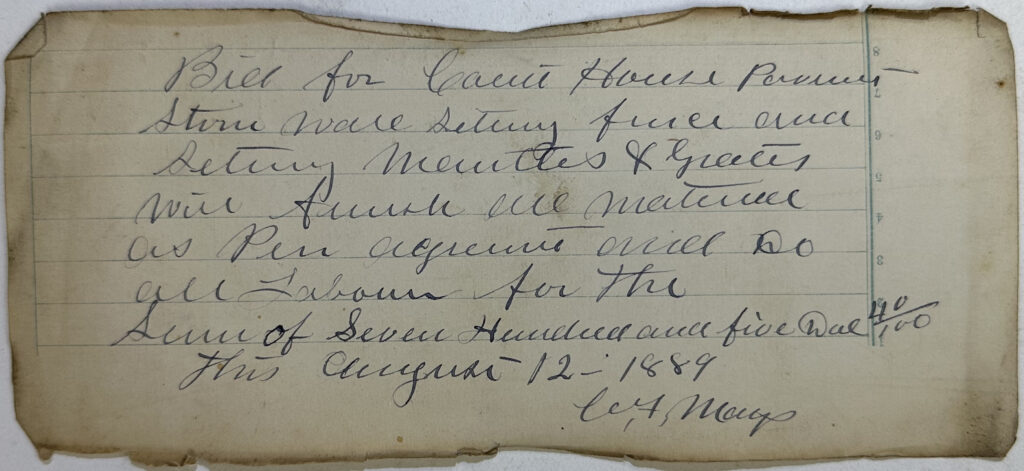 Bill for Court House Pavment
Ston Wall seting fence and
Seting Mantles & Grates
Will furnish all material
as Per agreemt and Do
all Labour for the
Sum of Seven Hundred and five Dol 40/100
This August 12 - 1889
C.F. Mays
8
7
6
5
4
3
1